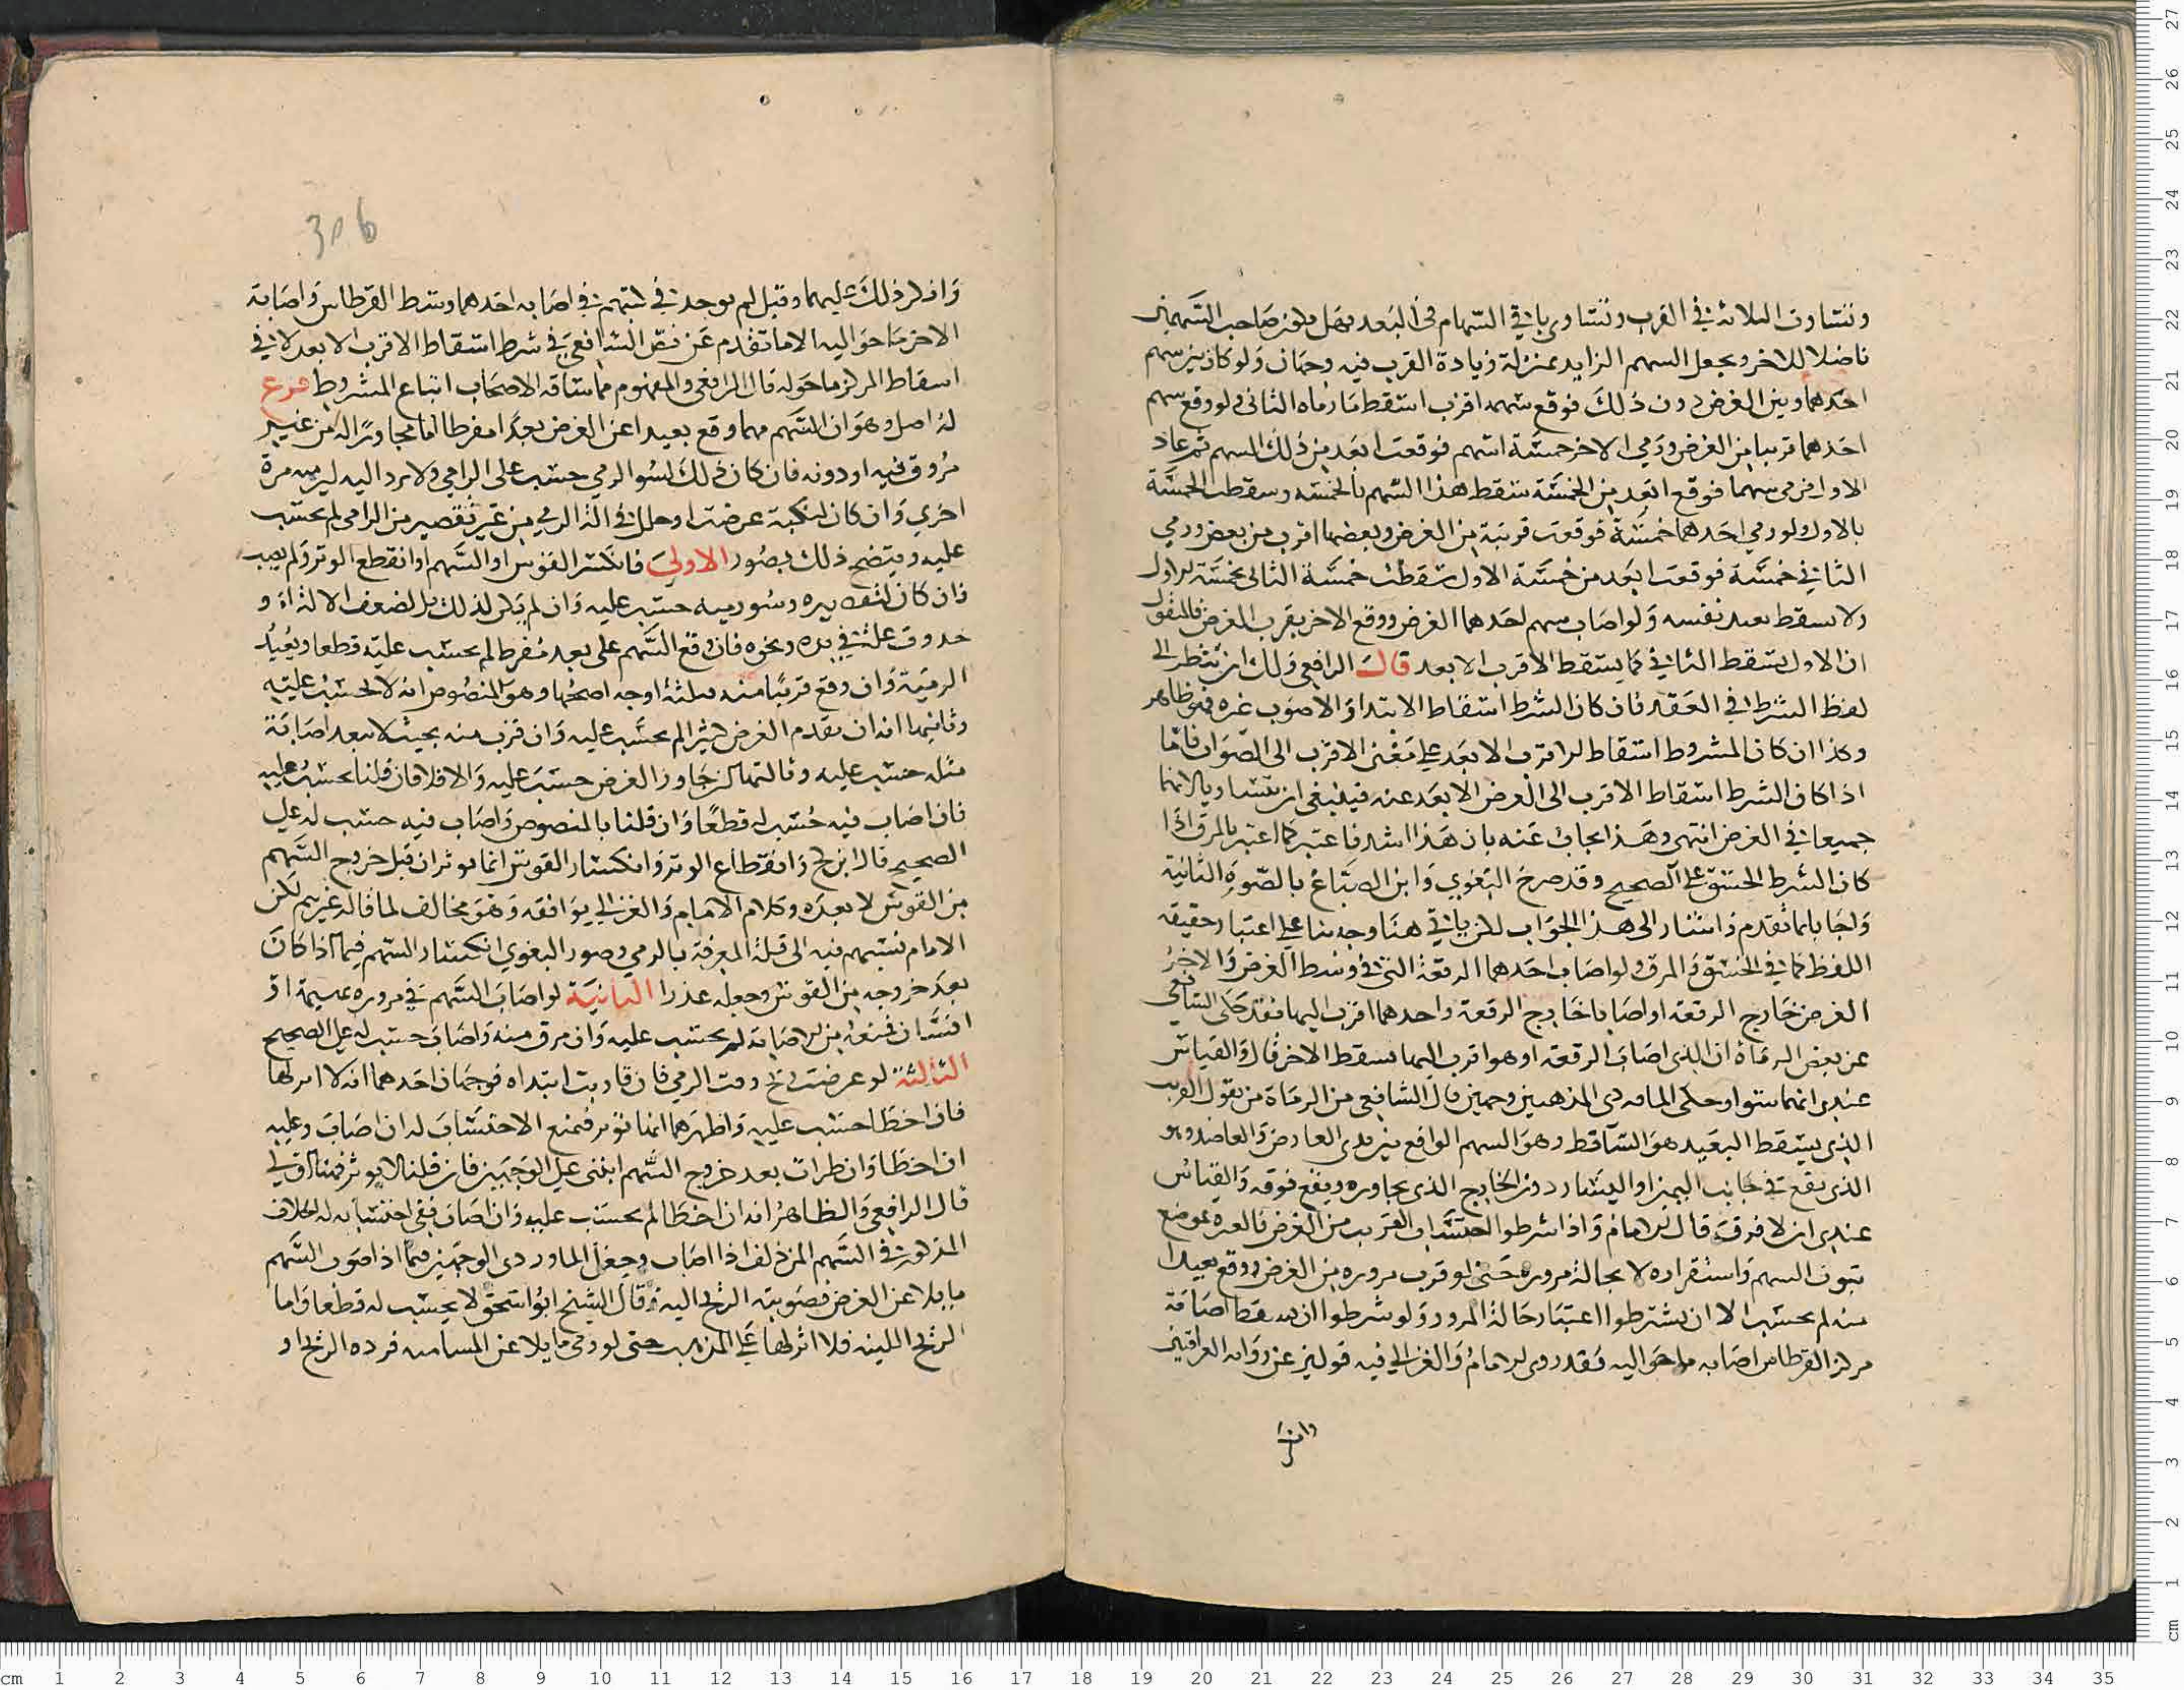 وتتساوى الثلاثة في القرب وتتساوى باقي السهام في البعد فهل يكون صاحب السهمين
ناضلا للاخر ويجعل السهم الزايد بمنزلة زيادة القرب فيه وجهان ولو كان بين سهم
احدهما وبين الغرض دون ذلك فوقع سهمه اقرب اسقط ما رماه الثاني ولو وقع سهم
احدهما قريبا من الغرض ورمى الاخر خمسة اسهم فوقعت ابعد من ذلك السهم ثم عاد
الاول فرمى سهما فوقع ابعد من الخمسة سقط هذا السهم بالخمسة وسقطت الخمسة
بالاول ولو رمي احدهما خمسة فوقعت قريبة من الغرض وبعضها اقرب من بعض ورمي
الثاني خمسة فوقعت ابعد من خمسة الاول سقطت خمسة الثاني بخمسة الاول
ولا يسقط بعيد نفسه ولو اصاب سهم احدهما الغرض ووقع الاخر بقرب الغرض فالمنقول
ان الاول يسقط الثاني كما يسقط الاقرب الابعد قال الرافعي ولك ان تنظر الى
لفظ الشرط في العقد فان كان الشرط اسقاط الاشد والاصوب غيره فهو ظاهر
وكذا ان كان المشروط اسقاط الاقرب الابعد على معنى الاقرب الى الصواب فاما
اذا كان الشرط اسقاط الاقرب الى الغرض الابعد عنه فينبغي ان يتساويا لانهما
جميعا في الغرض انتهى وهذا يجاب عنه بان هذا اشد فاعتبر كما اعتبر بالمرق اذا
كان الشرط الخسق على الصحيح وقد صرح البغوي وابن الصباغ بالصورة الثانية
واجابا بما تقدم واشار الى هذا الجواب لكن ياتي هنا وجه بناء على اعتبار حقيقة
اللفظ كما في الخسق والمرق ولو اصاب احدهما الرقعة التي في وسط الغرض والاخر
الغرض خارج الرقعة او اصابا خارج الرقعة واحدهما اقرب اليها فقد حكى الشافعي
عن بعض الرماة ان الذي اصاب الرقعة او هو اقرب اليها يسقط الاخر قال والقياس
عندي انهما سوا وحكى الماوردي المذهبين وجهين قال الشافعي من الرماة من يقول القريب
الذي يسقط البعيد هو الساقط وهو السهم الواقع بين يدي العارض والعاضد وهو
الذي يقع في جانب اليمين او اليسار دون الخارج الذي يجاوره ويقع فوقه والقياس
عندي ان لا فرق قال الامام واذا شرطوا احتساب القريب من الغرض فالعبرة بموضع
ثبوت السهم واستقراره لا بحالة مروره حتى لو قرب مروره من الغرض ووقع بعيدا
منه لم يحسب الا ان يشترطوا اعتبار حالة المرور ولو شرطوا ان يسقط اصابة
مركز القرطاس اصابه ما حواليه فقد روى الامام والغزالي فيه قولين عن رواية العراقيين
وانذكر
306
وانذكر ذلك عليهما وقيل لم يوجد في كتبهم في اصابه احدهما وسط القرطاس واصابة
الاخر ما حواليه الا ما تقدم عن نص الشافعي في شرط اسقاط الاقرب الابعد لا في
اسقاط المركز ما حوله قال الرافعي والمفهوم مما ساقه الاصحاب اتباع المشروط فرع
له اصل وهو ان السهم مهما وقع بعيدا عن الغرض بعدا مفرطا اما مجاوزا له من غير
مروق فيه او دونه فان كان ذلك لسوا الرمي حسب على الرامي ولا يرد اليه ليرميه مرة
اخري وان كان لنكبة عرضت او خلل في الة الرمي من غير تقصير من الرامي لم يحتسب
عليه ويتضح ذلك بصور الاولى فانكسر القوس او السهم او انقطع الوتر ولم يصب
فان كان لتقصيره وسو رميه حسب عليه وان لم يكن لذلك بل لضعف الالة او
حدوث علة في يده ونحوه فان وقع السهم على بعد مفرط لم يحتسب عليه قطعا ويعيد
الرمية وان وقع قريبا منه فثلثة اوجه اصحها وهو المنصوص انه لا يحسب عليه
وثانيها انه ان تقدم الغرض كثيرا لم يحسب عليه وان قرب منه بحيث لا تبعد اصابة
مثله حسب عليه وثالثها ان جاوز الغرض حسب عليه والا فلا فان قلنا يحسب عليه
فان اصاب فيه حسب له قطعا وان قلنا بالمنصوص واصاب فيه حسب له على
الصحيح قال ابن كج وانقطاع الوتر وانكسار القوس انما يوثران قبل خروج السهم
من القوس لا بعده وكلام الامام والغزالي يوافقه وهو مخالف لما قاله غيرهم لكن
الامام نسبهم فيه الى قلة المعرفة بالرمي وصور البغوي انكسار السهم فيما اذا كان
بعد خروجه من القوس وجعله عذرا الثانية لو اصاب السهم في مروره بهيمة او
انسان فمنعه من الاصابة لم يحتسب عليه وان مرق منه واصاب حسب له على الصحيح
الثالثة لو عرضت ريح وقت الرمي فان قارنت ابتداه فوجهان احدهما انه لا اثر لها
فان اخطا حسب عليه واظهرهما انها توثر فتمنع الاحتساب له ان اصاب وعليه
ان اخطا وان طرات بعد خروج السهم ابتنى على الوجهين فان قلنا لا يوثر فهنا اولى
قال الرافعي والظاهر انه ان اخطا لم يحسب عليه وان اصاب ففي احتسابه له الخلاف
المذكور في السهم المزدلف اذا اصاب وجعل الماوردي الوجهين فيما اذا صوب السهم
مايلا عن الغرض فصوبته الريح اليه وقال الشيخ ابو اسحق لا يحسب له قطعا واما
الريح اللينه فلا اثر لها على المذهب حتى لو رمى مايلا عن المسامته فرده الريح او